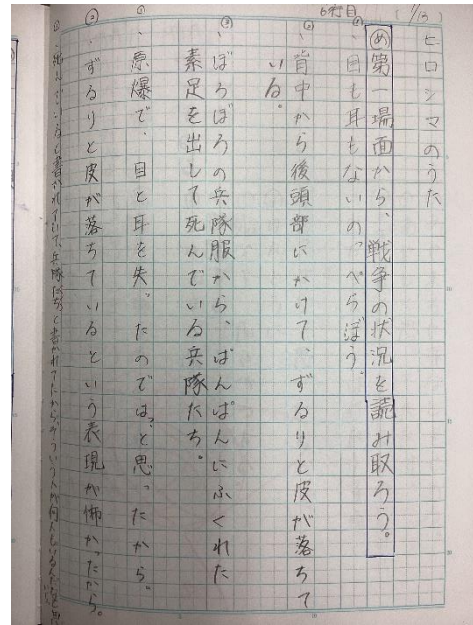 6行目 (1/13)
ヒロシマのうた
め 第一場面から、戦争の状況を読み取ろう。
①・目も耳もないの、ぺらぼう。
②・背中から後頭部にかけて、ずるりと皮が落ちて
いる。
③・ぼろぼろの兵隊服から、ぱんぱんにふくれた
素足を出して死んでいる兵隊たち。
①・原爆で、目と耳を失ったのでは、と思ったから。
②・ずるりと皮が落ちているという表現が怖かったから。
③・死んでいると書かれていて、兵隊たちと書かれて